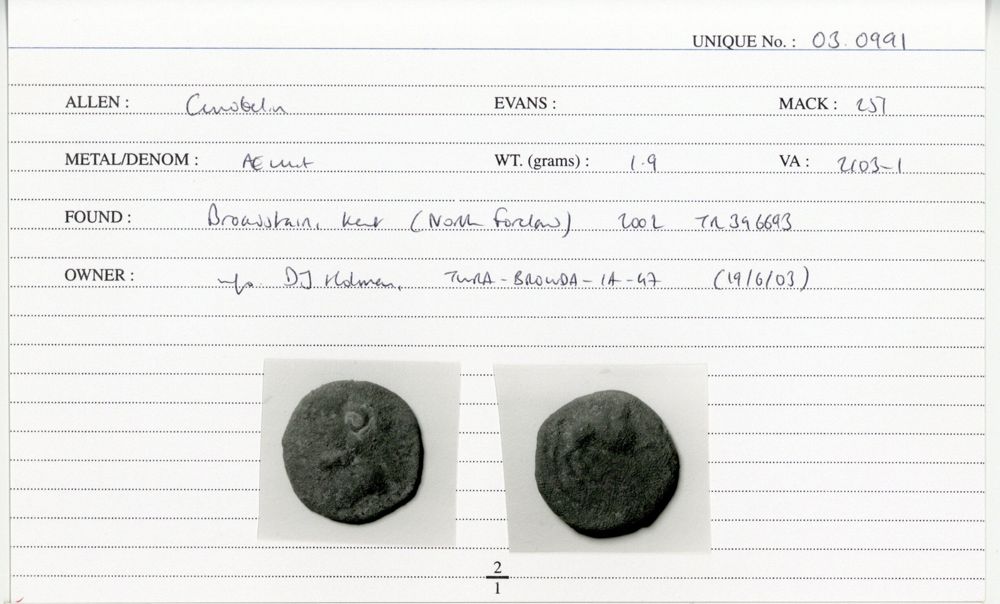 UNIQUE No. : 03.0991
ALLEN : Cunobelin EVANS : MACK : 251
METAL/DENOM : AE unit WT. (grams) : 1.9 VA : 2103-1
FOUND : Broadstairs, Kent (North Foreland) 2002 TR 396693
OWNER : DJ Holman, (19/6/03)
2
1